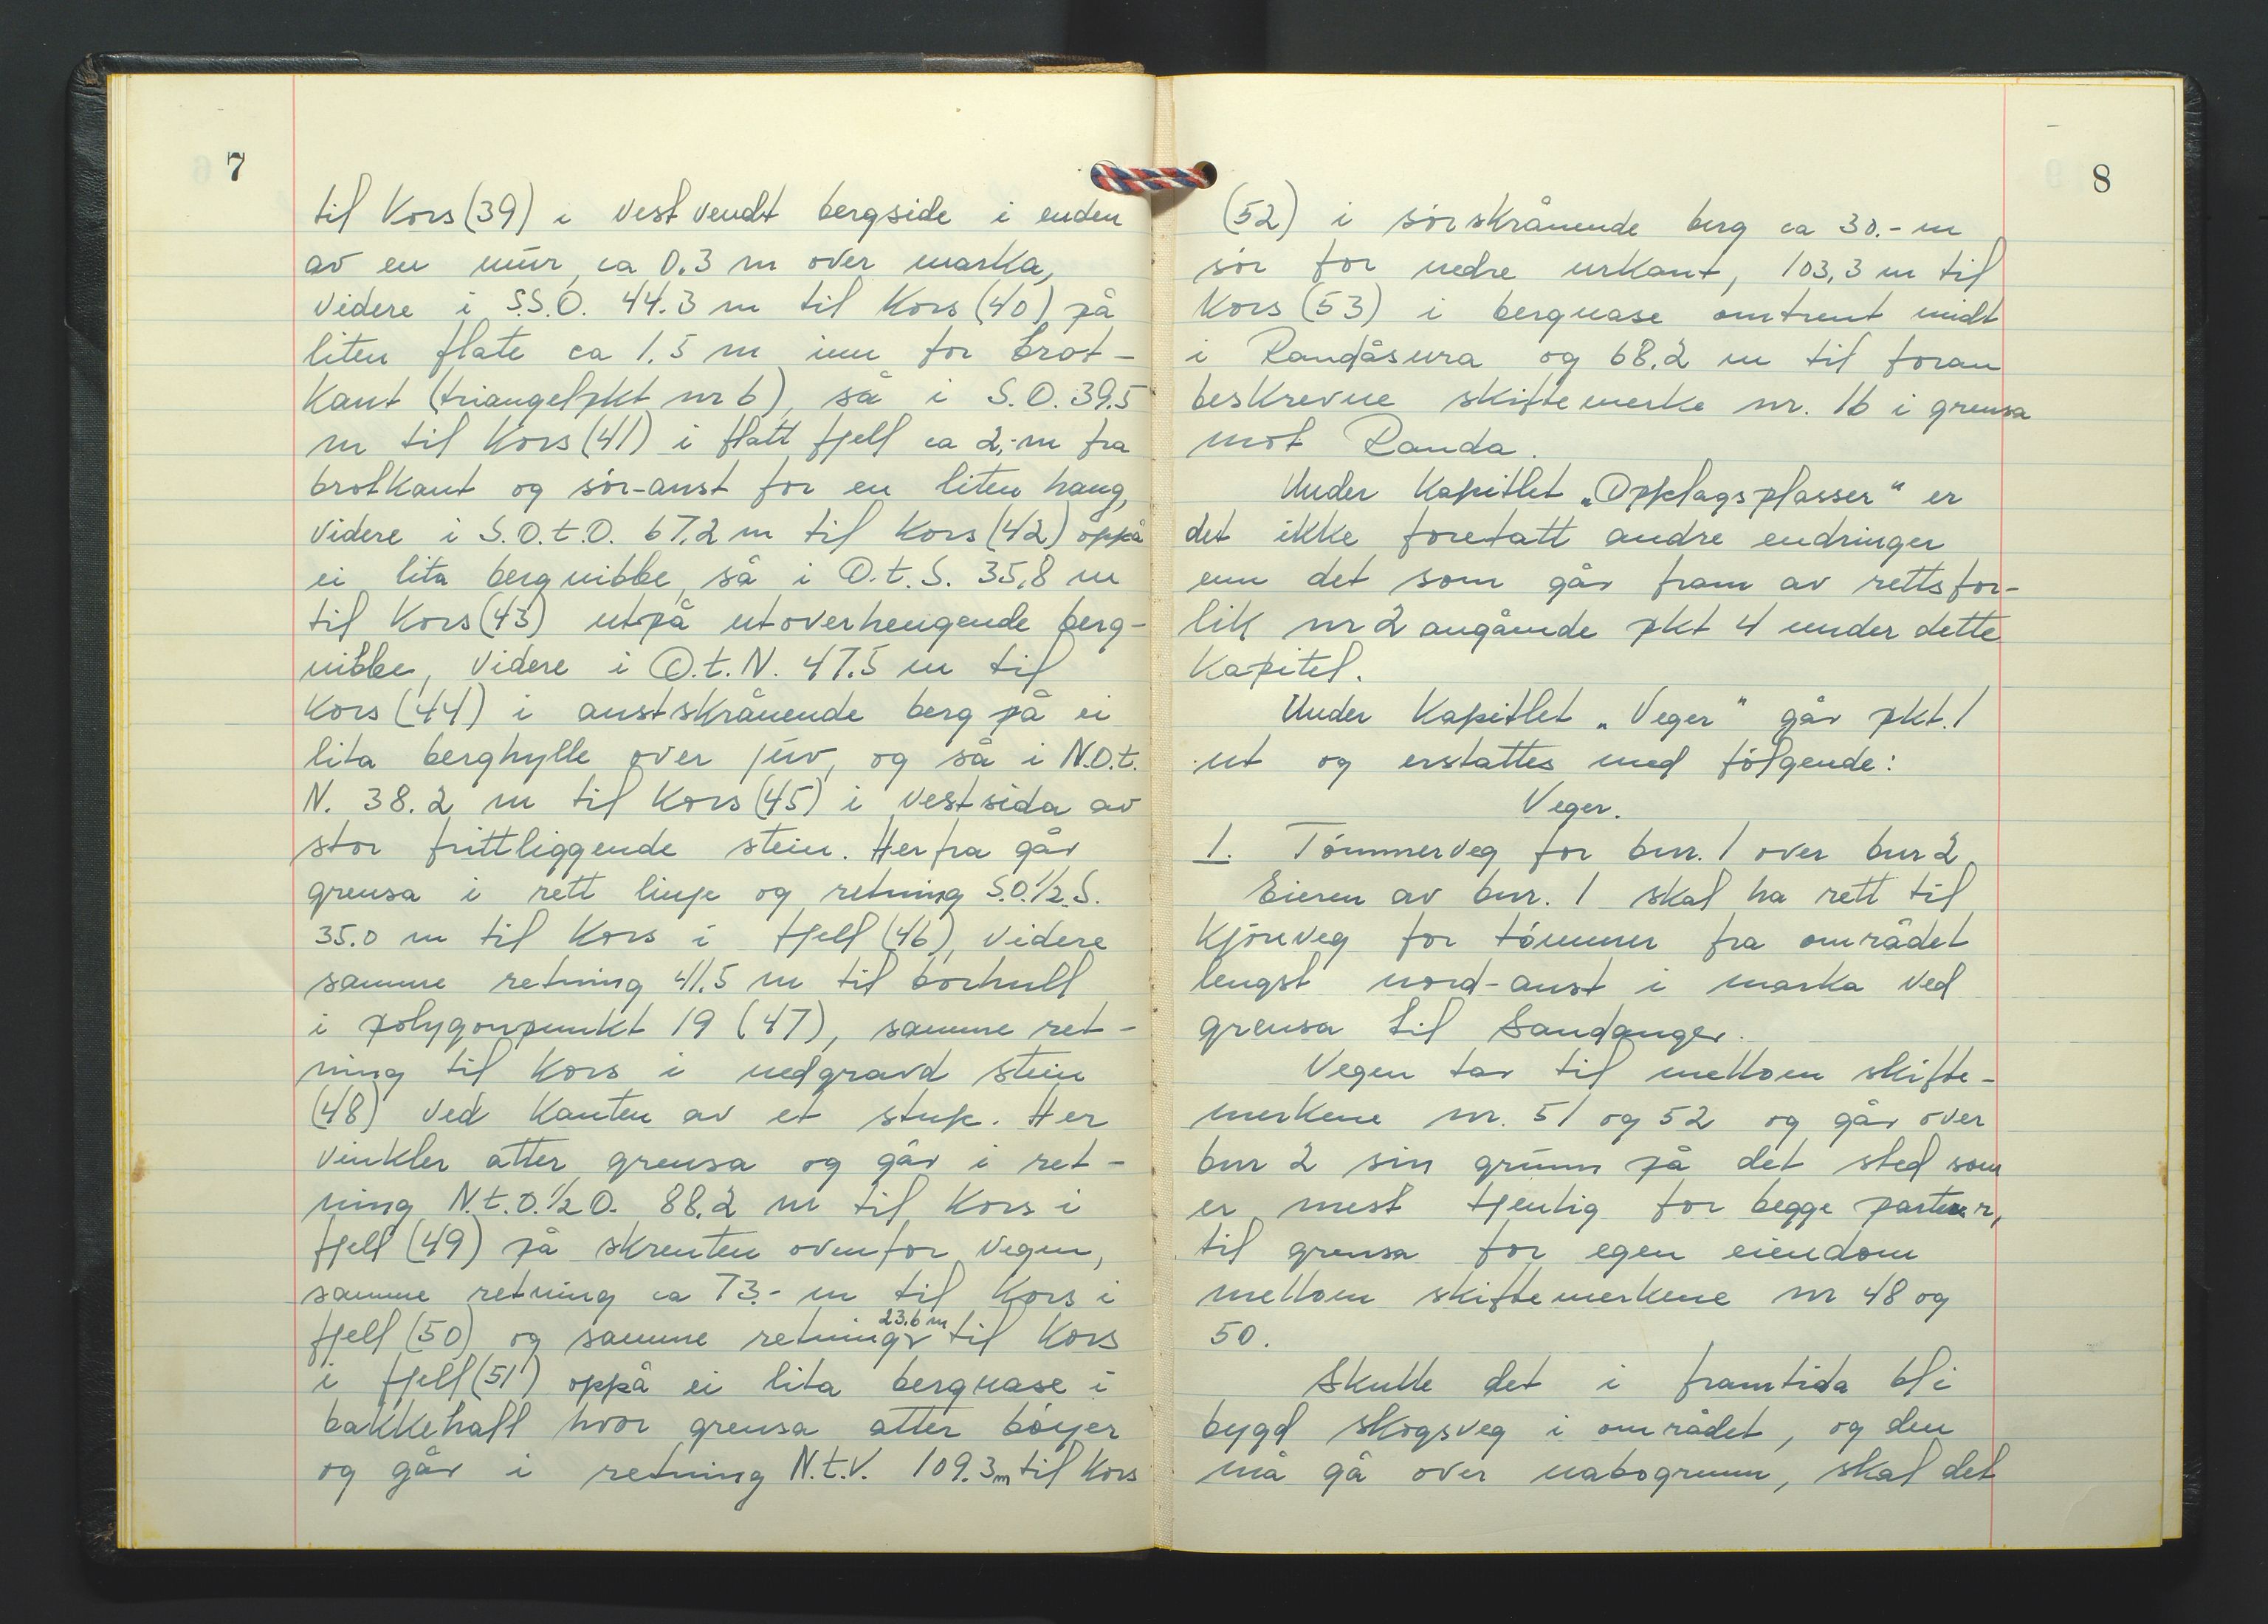 7
til Kors (39) i vestvendt bergside i enden
av en mur, ca 0.3 m over marka,
videre i S.S.O. 44.3 m til Kors (40) på
liten flate ca 1.5 m inn for brot-
kant (triangelpkt nr 6), så i S.O. 39.5
m til Kors (41) i flatt fjell ca 2,-m fra
brotkant og sør-aust for en liten haug,
videre i S.O.t.O. 67.2 m til Kors (42) oppå
ei lita bergnibbe, så i O.t.S. 35,8 m
til Kors (43) utpå utoverhengende berg-
nibbe, videre i O.t.N. 47.5 m til
Kors (44) i austskrånende berg på ei
lita berghylle over juv, og så i N.O.t.
N. 38.2 m til Kors (45) i vestsida av
stor frittliggende stein. Herfra går
grensa i rett linje og retning S.O.½.S.
35.0 m til Kors i fjell (46), videre
samme retning 41.5 m til borhull
i polygonpunkt 19 (47), samme ret-
ning til Kors i nedgravd stein
(48) ved kanten av et stup. Her
vinkler atter grensa og går i ret-
ning N.t.O.½O. 88.2 m til Kors i
fjell (49) på skrenten ovenfor vegen,
samme retning ca 73.- m til Kors i
fjell (50) og samme retning 23.6 m til Kors
i fjell (51) oppå ei lita bergnase i
bakkehall hvor grensa atter bøyer
og går i retning N.t.V. 109.3 m til Kors
8
(52) i sørskrånende berg ca 30.- m
sør for nedre urkant, 103,3 m til
Kors (53) i bergnase omtrent midt
i Randåsura og 68.2 m til foran
beskrevne skiftemerke nr. 16 i grensa
mot Randa.
Under Kapitlet „Opplagsplasser" er
det ikke foretatt andre endringer
enn det som går fram av rettsfor-
lik nr 2 angående pkt 4 under dette
Kapitel.
Under Kapitlet „Veger" går pkt. 1
ut og erstattes med følgende:
Veger.
1. Tømmerveg for bnr. 1 over bnr 2
Eieren av bnr. 1 skal ha rett til
kjøreveg for tømmer fra området
lengst nord-aust i marka ved
grensa til Sandanger.
Vegen tar til mellom skifte-
merkene nr. 51 og 52 og går over
bnr 2 sin grunn på det sted som
er mest tjenlig for begge parter,
til grensa for egen eiendom
mellom skiftemerkene nr 48 og
50.
Skulle det i framtida bli
bygd skogsveg i området, og den
må gå over nabogrunn, skal det